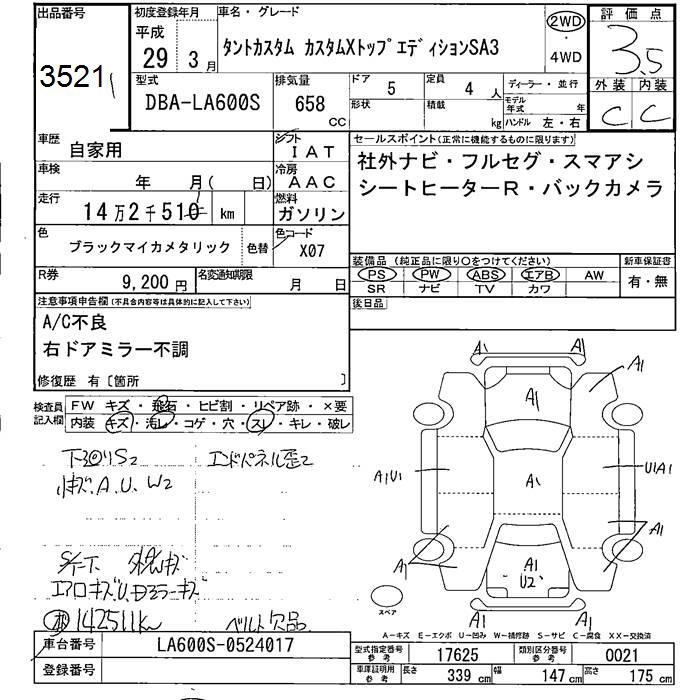 出品番号
3521
初度登録年月
平成
29 3 月
車名・グレード
タントカスタム カスタムXトップエディションSA3
2WD
・
4WD
評価点
3.5
外装 内装
C C
型式
DBA-LA600S
排気量
658
CC
ドア
5
定員
4 人
形状
積載
kg
ディーラー・並行
モデル年式 年
ハンドル 左・右
車歴
自家用
シフト
IAT
車検
年 月( 日)
冷房
AAC
走行
14万2千510 km
燃料
ガソリン
色
ブラックマイカメタリック
色替
色コード
X07
R券
9,200 円
名変通知期限
月 日
セールスポイント(正常に機能するものに限ります)
社外ナビ・フルセグ・スマアシ
シートヒーターR・バックカメラ
装備品 (純正品に限り○をつけてください)
PS PW ABS エアB AW
SR ナビ TV カワ
新車保証書
有・無
後日品
注意事項申告欄(不具合内容等は具体的に記入して下さい)
A/C不良
右ドアミラー不調
修復歴 有〔箇所 〕
検査員記入欄
FW キズ・飛石・ヒビ割・リペア跡・×要
内装 キズ・汚レ・コゲ・穴・スレ・キレ・破レ
下回りS2
エンドパネル歪2
キズ.A.U.W2
エアロキズU.ドアミラーキズ
142511km
ベルト欠品
A1 A1
A1
A1
A1U1
A1
U1A1
A1
A1
A1
U2
A1 A1
スペア
A-キズ E-エクボ U-凹み W-補修跡 S-サビ C-腐食 XX-交換済
車台番号
LA600S-0524017
登録番号
型式指定番号
参考
17625
類別区分番号
参考
0021
車庫証明用
参考
長さ
339 cm
幅
147 cm
高さ
175 cm